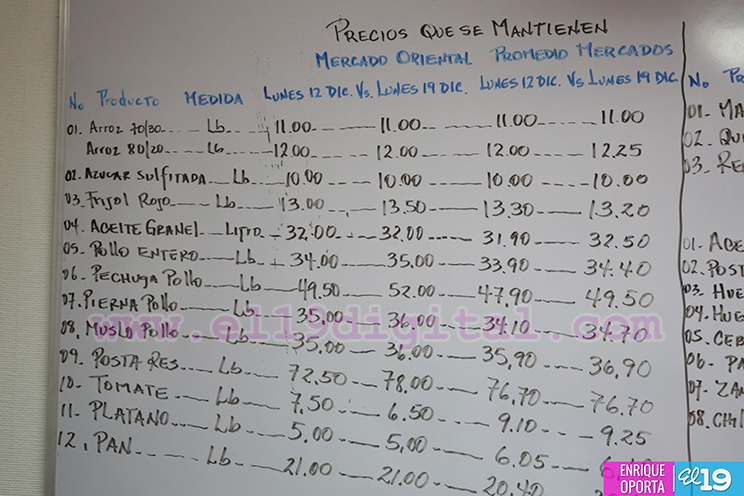 PRECIOS QUE SE MANTIENEN
MERCADO ORIENTAL PROMEDIO MERCADOS
No Producto MEDIDA LUNES 12 DIC. Vs. LUNES 19 DIC. LUNES 12 DIC. Vs LUNES 19 DIC
01. Arroz 70/30 Lb 11.00 11.00 11.00 11.00
Arroz 80/20 Lb 12.00 12.00 12.00 12.25
02. AZUCAR SULFITADA Lb 10.00 10.00 10.00 10.00
03. Frijol Rojo Lb 13.00 13.50 13.30 13.20
04. ACEITE GRANEL Litro 32.00 32.00 31.90 32.50
05. Pollo ENTERO Lb 34.00 35.00 33.90 34.40
06. PECHUGA Pollo Lb 49.50 52.00 47.90 49.50
07. PIERNA Pollo Lb 35.00 36.00 34.10 34.70
08. MUSLO Pollo Lb 35.00 36.00 35,90 36.90
09. POSTA RES Lb 72.50 78.00 76.70 76.70
10- TOMATE Lb 7.50 6.50 9.10 9.25
11- PLATANO Lb 5.00 5,00 6.05
12. PAN Lb 21.00 21.00 20.40
No
01-
02.
03.
01-
02.
03.
04.
05.
06-
07-
08.
www.el19digital.com
ENRIQUE OPORTA
El 19